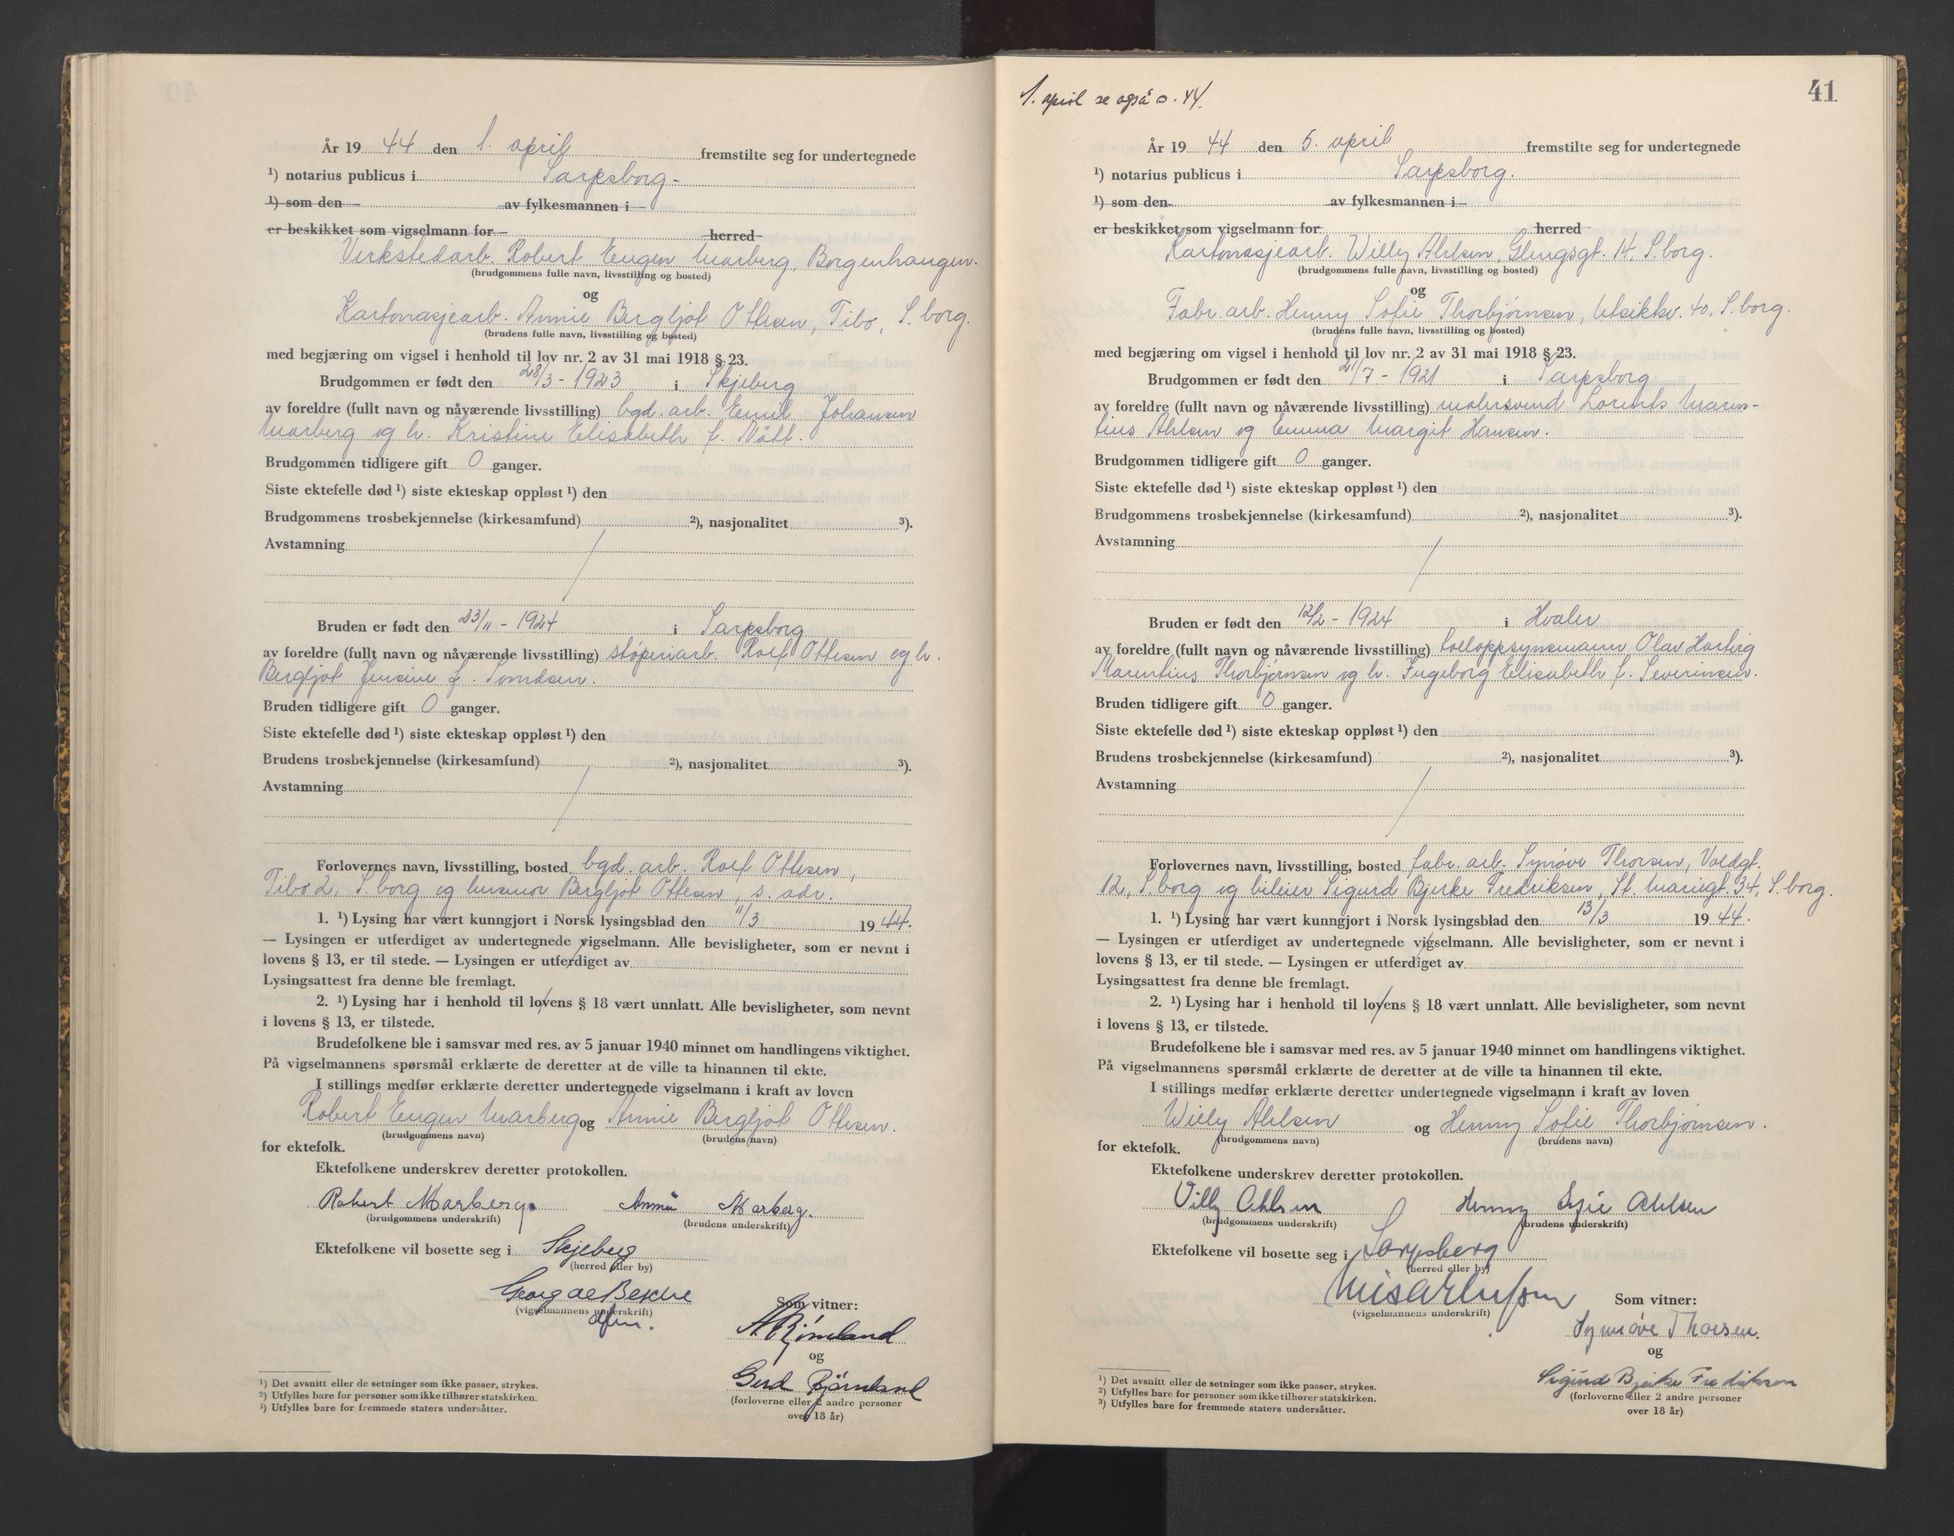 År 19 44 den 1. april fremstilte seg for undertegnede
¹) notarius publicus i Sarpsborg -
¹) som den - av fylkesmannen i -
er beskikket som vigselmann for - herred
Verkstedarb. Robert Eugen Marberg, Borgenhaugen.
(brudgommens fulle navn, livsstilling og bosted)
og
Kartonasjearb. Annie Bergljot Ottesen, Tibo, S.borg.
(brudens fulle navn, livsstilling og bosted)
med begjæring om vigsel i henhold til lov nr. 2 av 31 mai 1918 § 23.
Brudgommen er født den 28/3 - 1923 i Skjeberg
av foreldre (fullt navn og nåværende livsstilling) bgd. arb. Emil Johansen
Marberg og h. Kristine Elisabeth f. Nätt.
Brudgommen tidligere gift 0 ganger.
Siste ektefelle død ¹) siste ekteskap oppløst ¹) den
Brudgommens trosbekjennelse (kirkesamfund) ²), nasjonalitet ³).
Avstamning
Bruden er født den 23/11 - 1924 i Sarpsborg
av foreldre (fullt navn og nåværende livsstilling) støperiarb. Rolf Ottesen og h.
Bergljot Jensine f.
Bruden tidligere gift 0 ganger.
Siste ektefelle død ¹) siste ekteskap oppløst ¹) den
Brudens trosbekjennelse (kirkesamfund) ²), nasjonalitet ³).
Avstamning
Forlovernes navn, livsstilling, bosted bgd. arb. Rolf Ottesen,
Tibo 2, S.borg og husmor Bergljot Ottesen, s. adr.
1. ¹) Lysing har vært kunngjort i Norsk lysingsblad den 11/3 1944.
— Lysingen er utferdiget av undertegnede vigselmann. Alle bevisligheter, som er nevnt i
lovens § 13, er til stede. — Lysingen er utferdiget av
Lysingsattest fra denne ble fremlagt.
2. ¹) Lysing har i henhold til lovens § 18 vært unnlatt. Alle bevisligheter, som nevnt
i lovens § 13, er tilstede.
Brudefolkene ble i samsvar med res. av 5 januar 1940 minnet om handlingens viktighet.
På vigselmannens spørsmål erklærte de deretter at de ville ta hinannen til ekte.
I stillings medfør erklærte deretter undertegnede vigselmann i kraft av loven
Robert Eugen Marberg og Annie Bergljot Ottesen.
(brudgommens navn) (brudens navn)
for ektefolk.
Ektefolkene underskrev deretter protokollen.
Robert Marberg. Annie Marberg.
(brudgommens underskrift) (brudens underskrift)
Ektefolkene vil bosette seg i Skjeberg
(herred eller by)
Georg
(vigselmannens underskrift) Som vitner:
A Bjørnland
og
Gerd Bjørnland
(forloverne eller 2 andre personer
over 18 år)
¹) Det avsnitt eller de setninger som ikke passer, strykes.
²) Utfylles bare for personer som ikke tilhører statskirken.
³) Utfylles bare for fremmede staters undersåtter.
1. april se også s. 44.
41
År 19 44 den 5. april fremstilte seg for undertegnede
¹) notarius publicus i Sarpsborg.
¹) som den - av fylkesmannen i -
er beskikket som vigselmann for herred
Kartonasjearb. Willy Ahlsen, Glengsgt. 14, S.borg.
(brudgommens fulle navn, livsstilling og bosted)
og
Fabr. arb. Henny Sofie Thorbjørnsen, Utsiktv. 40, S.borg.
(brudens fulle navn, livsstilling og bosted)
med begjæring om vigsel i henhold til lov nr. 2 av 31 mai 1918 § 23.
Brudgommen er født den 21/7 - 1921 i Sarpsborg
av foreldre (fullt navn og nåværende livsstilling) malersvend Lorents Maren-
tius Ahlsen og Emma Margit Hansen.
Brudgommen tidligere gift 0 ganger.
Siste ektefelle død ¹) siste ekteskap oppløst ¹) den
Brudgommens trosbekjennelse (kirkesamfund) ²), nasjonalitet ³).
Avstamning
Bruden er født den 12/2 - 1924 i Hvaler
av foreldre (fullt navn og nåværende livsstilling) tolloppsynsmann Olav Hartvig
Marentius Thorbjørnsen og h. Ingeborg Elisabeth f. Severinsen.
Bruden tidligere gift 0 ganger.
Siste ektefelle død ¹) siste ekteskap oppløst ¹) den
Brudens trosbekjennelse (kirkesamfund) ²), nasjonalitet ³).
Avstamning
Forlovernes navn, livsstilling, bosted fabr. arb. Synøve Thorsen, Voldgt.
12, S.borg og bileier Sigurd Bjerke Fredriksen, St. Mariegt. 34, S.borg.
1. ¹) Lysing har vært kunngjort i Norsk lysingsblad den 13/3 1944.
— Lysingen er utferdiget av undertegnede vigselmann. Alle bevisligheter, som er nevnt i
lovens § 13, er til stede. — Lysingen er utferdiget av
Lysingsattest fra denne ble fremlagt.
2. ¹) Lysing har i henhold til lovens § 18 vært unnlatt. Alle bevisligheter, som nevnt
i lovens § 13, er tilstede.
Brudefolkene ble i samsvar med res. av 5 januar 1940 minnet om handlingens viktighet.
På vigselmannens spørsmål erklærte de deretter at de ville ta hinannen til ekte.
I stillings medfør erklærte deretter undertegnede vigselmann i kraft av loven
Willy Ahlsen og Henny Sofie Thorbjørnsen.
(brudgommens navn) (brudens navn)
for ektefolk.
Ektefolkene underskrev deretter protokollen.
Villy Ahlsen Henny Sofie Ahlsen
(brudgommens underskrift) (brudens underskrift)
Ektefolkene vil bosette seg i Sarpsborg
(herred eller by)
(vigselmannens underskrift) Som vitner:
Synnøve Thorsen.
og
Sigurd Bjerke Fredriksen
(forloverne eller 2 andre personer
over 18 år)
¹) Det avsnitt eller de setninger som ikke passer, strykes.
²) Utfylles bare for personer som ikke tilhører statskirken.
³) Utfylles bare for fremmede staters undersåtter.